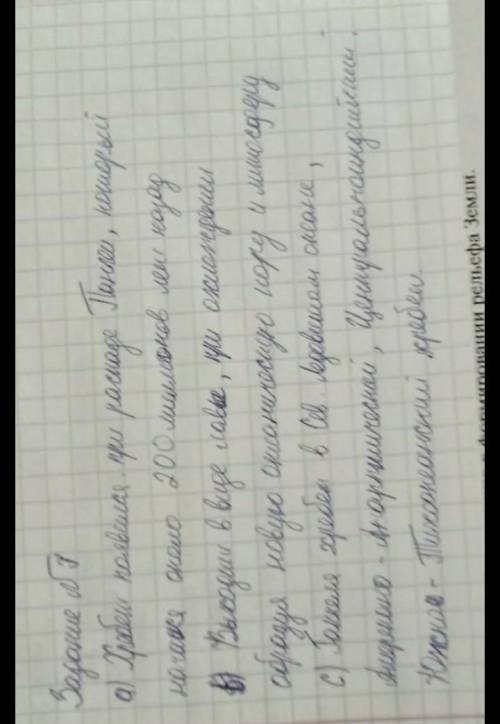 Задание №1
а) Хребет появился при распаде Пангеи, который
начался около 200 миллионов лет назад
b) Выходит в виде лавы, при охлаждении
образуя новую океаническую кору и литосферу
с) Гаккеля хребет в Св. Ледовитом океане,
Американо-Антарктический, Центральноиндийский.
Южно-Тихоокеанский хребет.
формировании рельефа Земли.